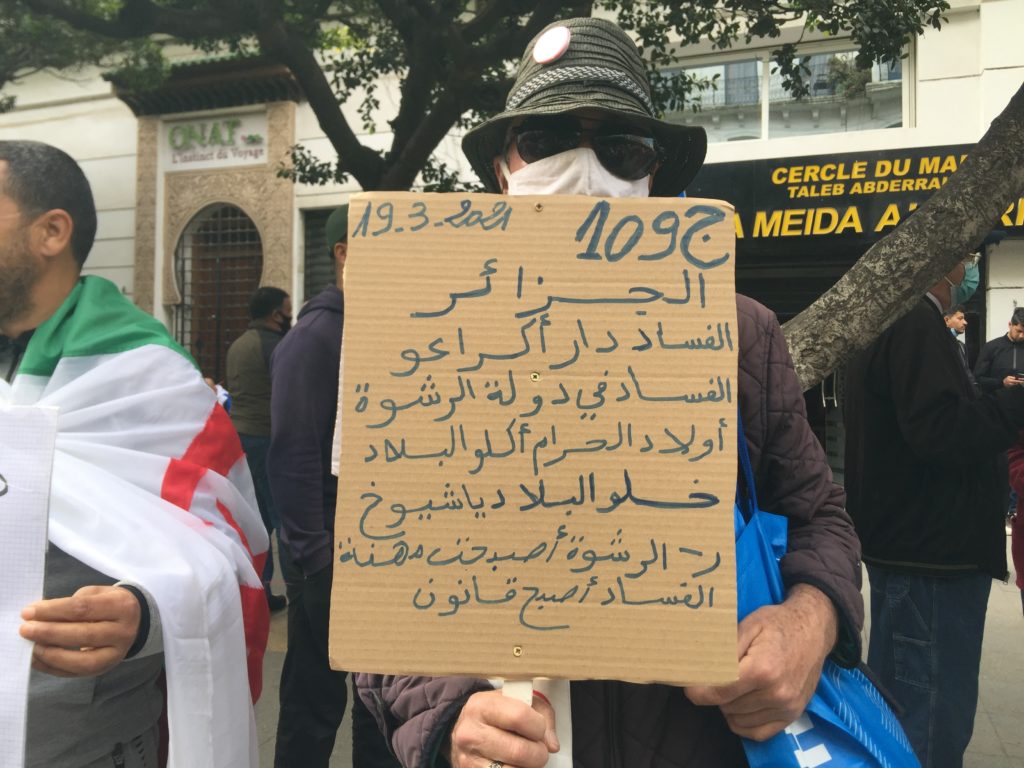 ONAT
L'instinct du Voyage
CERCLE DU MA
TALEB ABDERRA
A MEIDA A
19.3-2021 ج109
الجزائر
الفساد دار أكراعو
الفساد في دولة الرشوة
أولاد الحرام أكلو البلاد
خلو البلاد ياشيوخ
الرشوة أصبحت مهنة
الفساد أصبح قانون